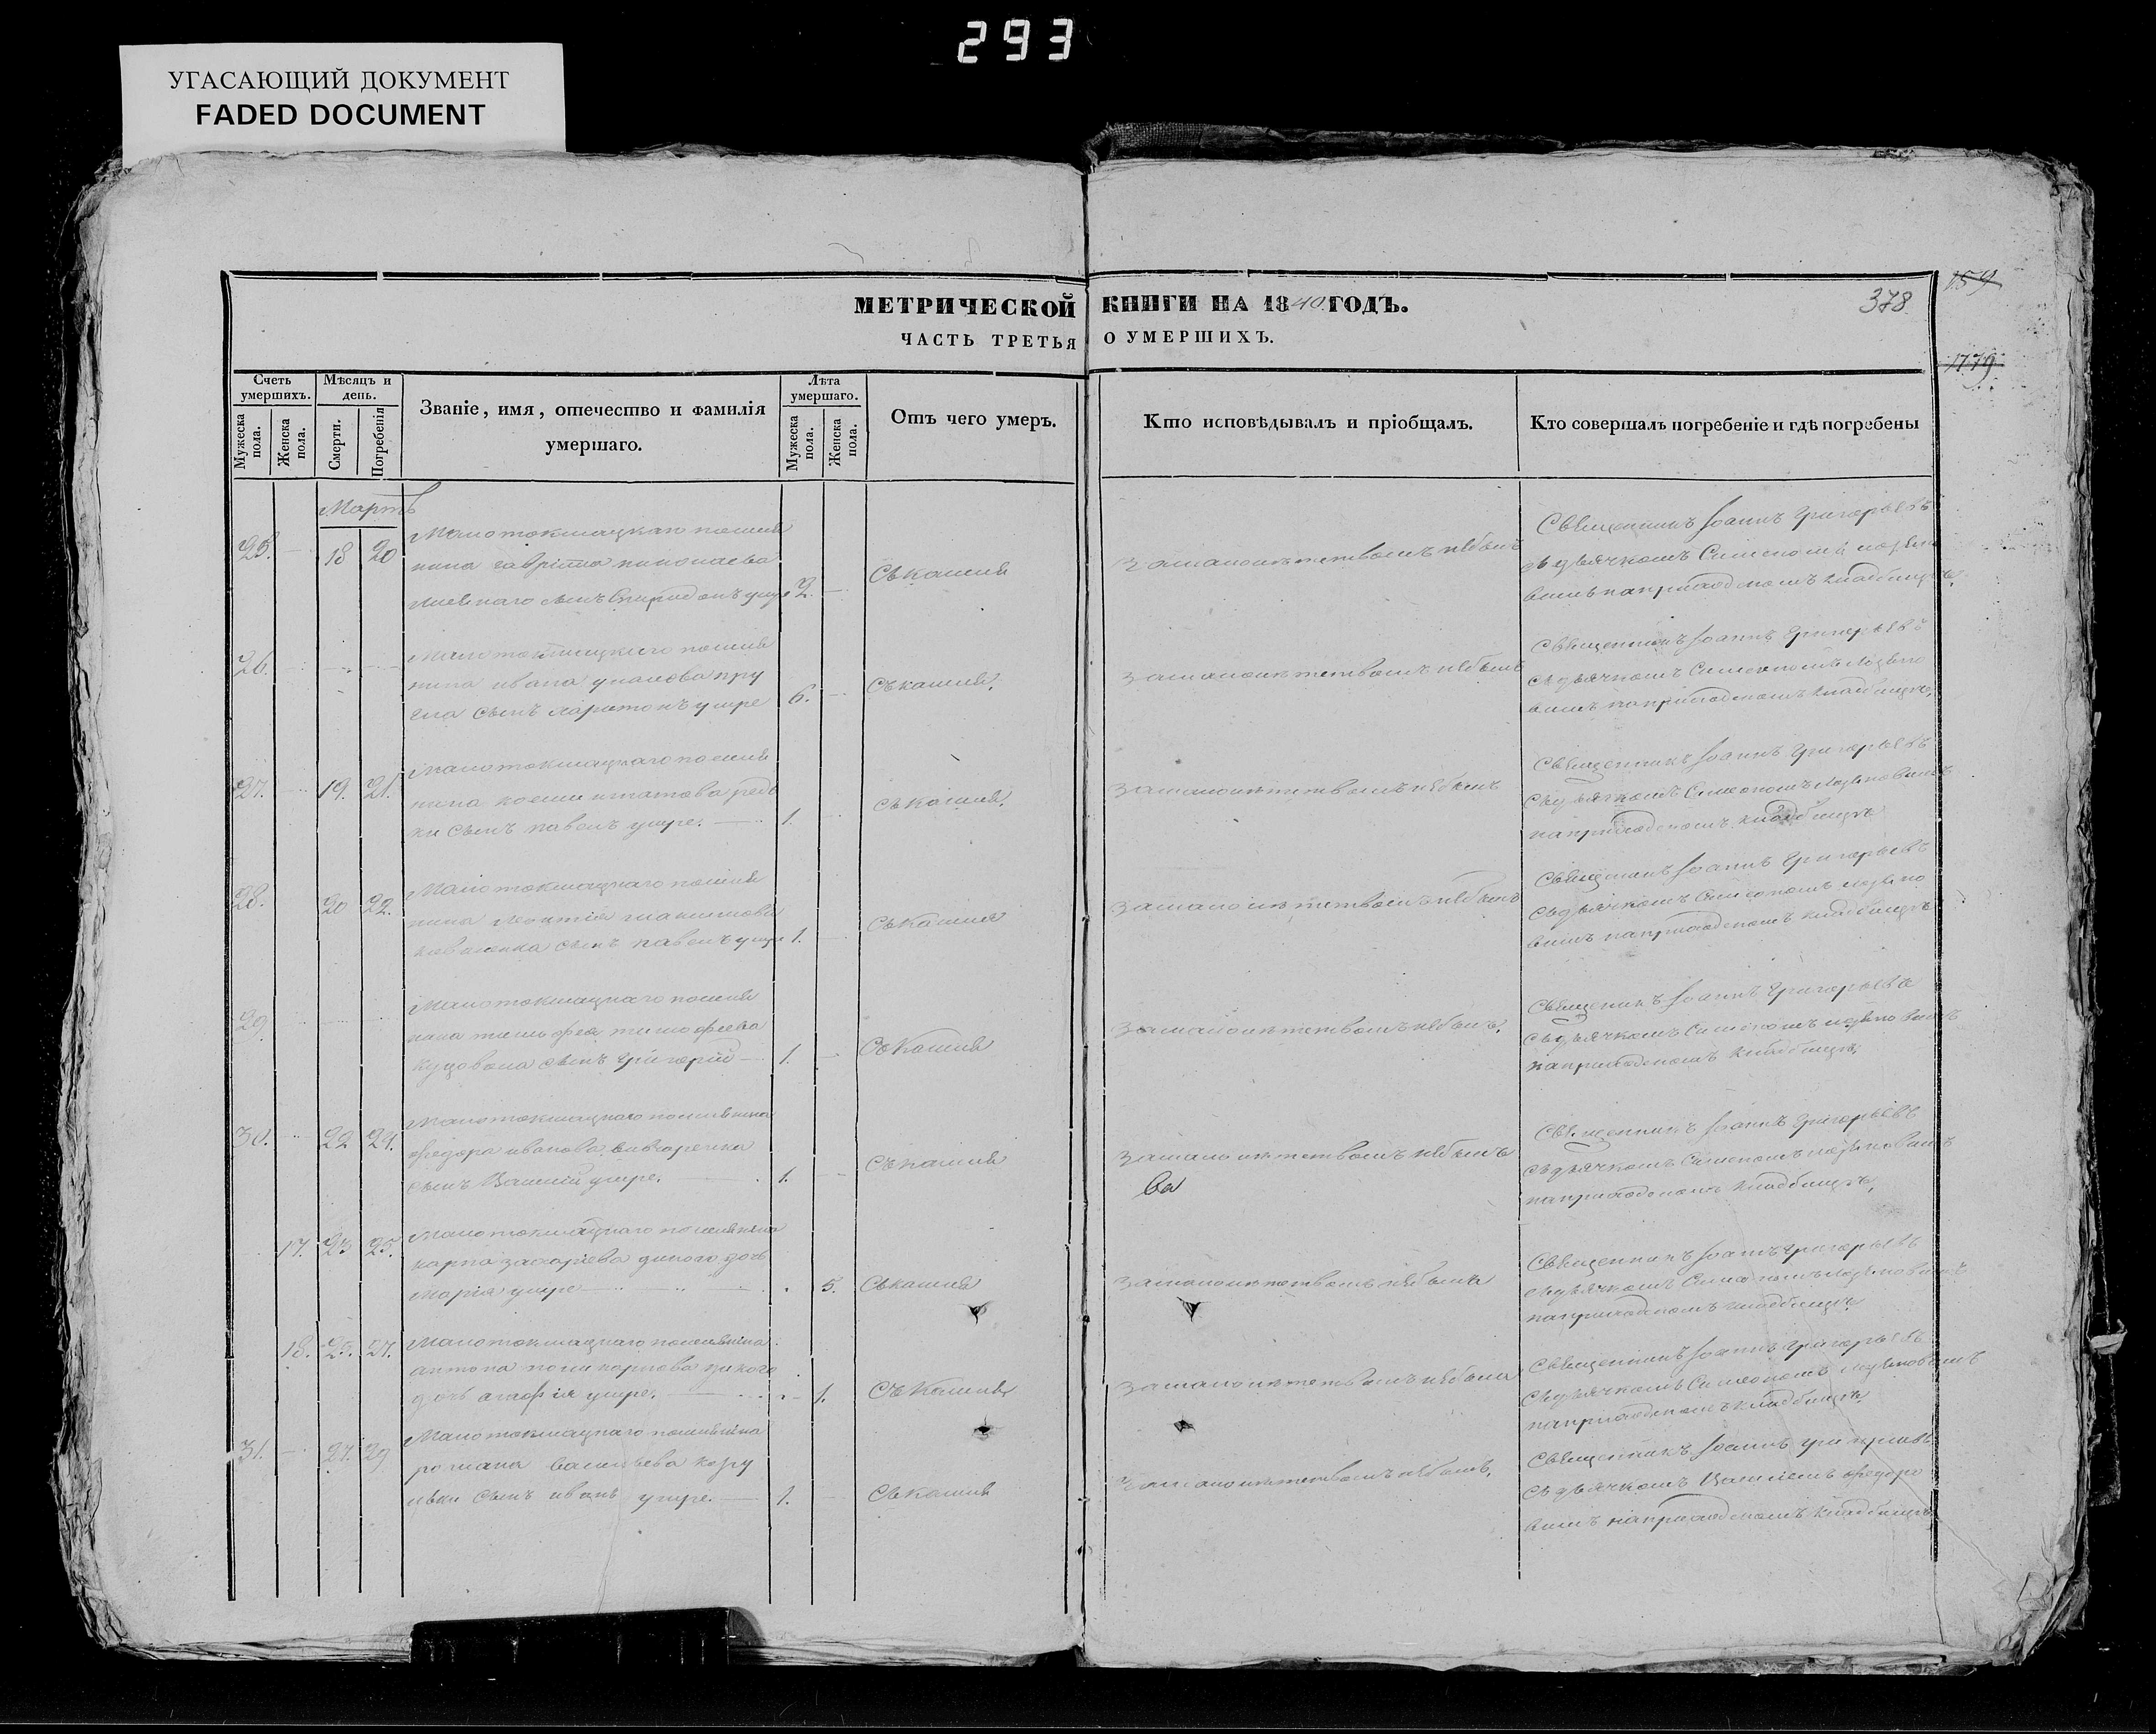 293
УГАСАЮЩИЙ ДОКУМЕНТ
FADED DOCUMENT
159
МЕТРИЧЕСКОЙ КНИГИ НА 1840 ГОДЪ.
378
ЧАСТЬ ТРЕТЬЯ О УМЕРШИХЪ.
1779
Счетъ умершихъ.
Мужеска пола.
Женска пола.
Мѣсяцъ и день.
Смерти.
Погребенія
Званіе, имя, отечество и фамилія умершаго.
Лѣта умершаго.
Мужеска пола.
Женска пола.
Отъ чего умеръ.
Кто исповѣдывалъ и пріобщалъ.
Кто совершалъ погребеніе и гдѣ погребены
Мартъ
25. 18 20
Малотокмацкаго поселя
нина гавріила
сынъ Спиридонъ умре 2.
Съкашля
замалолѣтствомъ небылъ
Священникъ Іоаннъ Григорьевъ
съдьячкомъ Симеономъ
наприходскомъ кладбищѣ.
26.
Малотокмацкаго поселя
нина ивана
сынъ харитонъ умре 6.
Съкашля.
замалолѣтствомъ небылъ
Священникъ Іоаннъ Григорьевъ
съдьячкомъ Симеономъ
наприходскомъ кладбищѣ.
27. 19. 21.
Малотокмацкаго поселя
нина
сынъ павелъ умре. 1.
съкашля.
замалолѣтствомъ небылъ
Священникъ Іоаннъ Григорьевъ
съдьячкомъ Симеономъ
наприходскомъ кладбищѣ
28. 20 22.
Малотокмацкаго поселя
нина Леонтія максимова
коваленка сынъ павелъ умре 1.
Съкашля
замалолѣтствомъ небылъ
Священникъ Іоаннъ Григорьевъ
съдьячкомъ Симеономъ
наприходскомъ кладбищѣ
29.
Малотокмацкаго поселя
нина тимофея тимофеева
сынъ Григорій 1.
Съкашля
замалолѣтствомъ небылъ.
Священникъ Іоаннъ Григорьевъ
съдьячкомъ Симеономъ
наприходскомъ кладбищѣ.
30. 22 24.
Малотокмацкаго поселянина
федора иванова
сынъ Василій умре. 1.
Съкашля
замалолѣтствомъ небылъ
ва
Священникъ Іоаннъ Григорьевъ
съдьячкомъ Симеономъ
наприходскомъ кладбищѣ.
17. 23 25.
Малотокмацкаго поселянина
карпа захаріева дикого дочь
Марія умре 5.
Съкашля
замалолѣтствомъ небыла
Священникъ Іоаннъ Григорьевъ
съдьячкомъ Симеономъ
наприходскомъ кладбищѣ.
18. 25. 27.
Малотокмацкаго поселянина
антона поликарпова дикого
дочь агафія умре. 1.
Съкашля
замалолѣтствомъ небыла
Священникъ Іоаннъ Григорьевъ
съдьячкомъ Симеономъ
наприходскомъ кладбищѣ.
31. 27. 29
Малотокмацкаго поселянина
романа васильева
сынъ иванъ умре. 1.
Съкашля
замалолѣтствомъ небылъ.
Священникъ Іоаннъ Григорьевъ
съдьячкомъ Василіемъ федоро
вымъ наприходскомъ кладбищѣ.